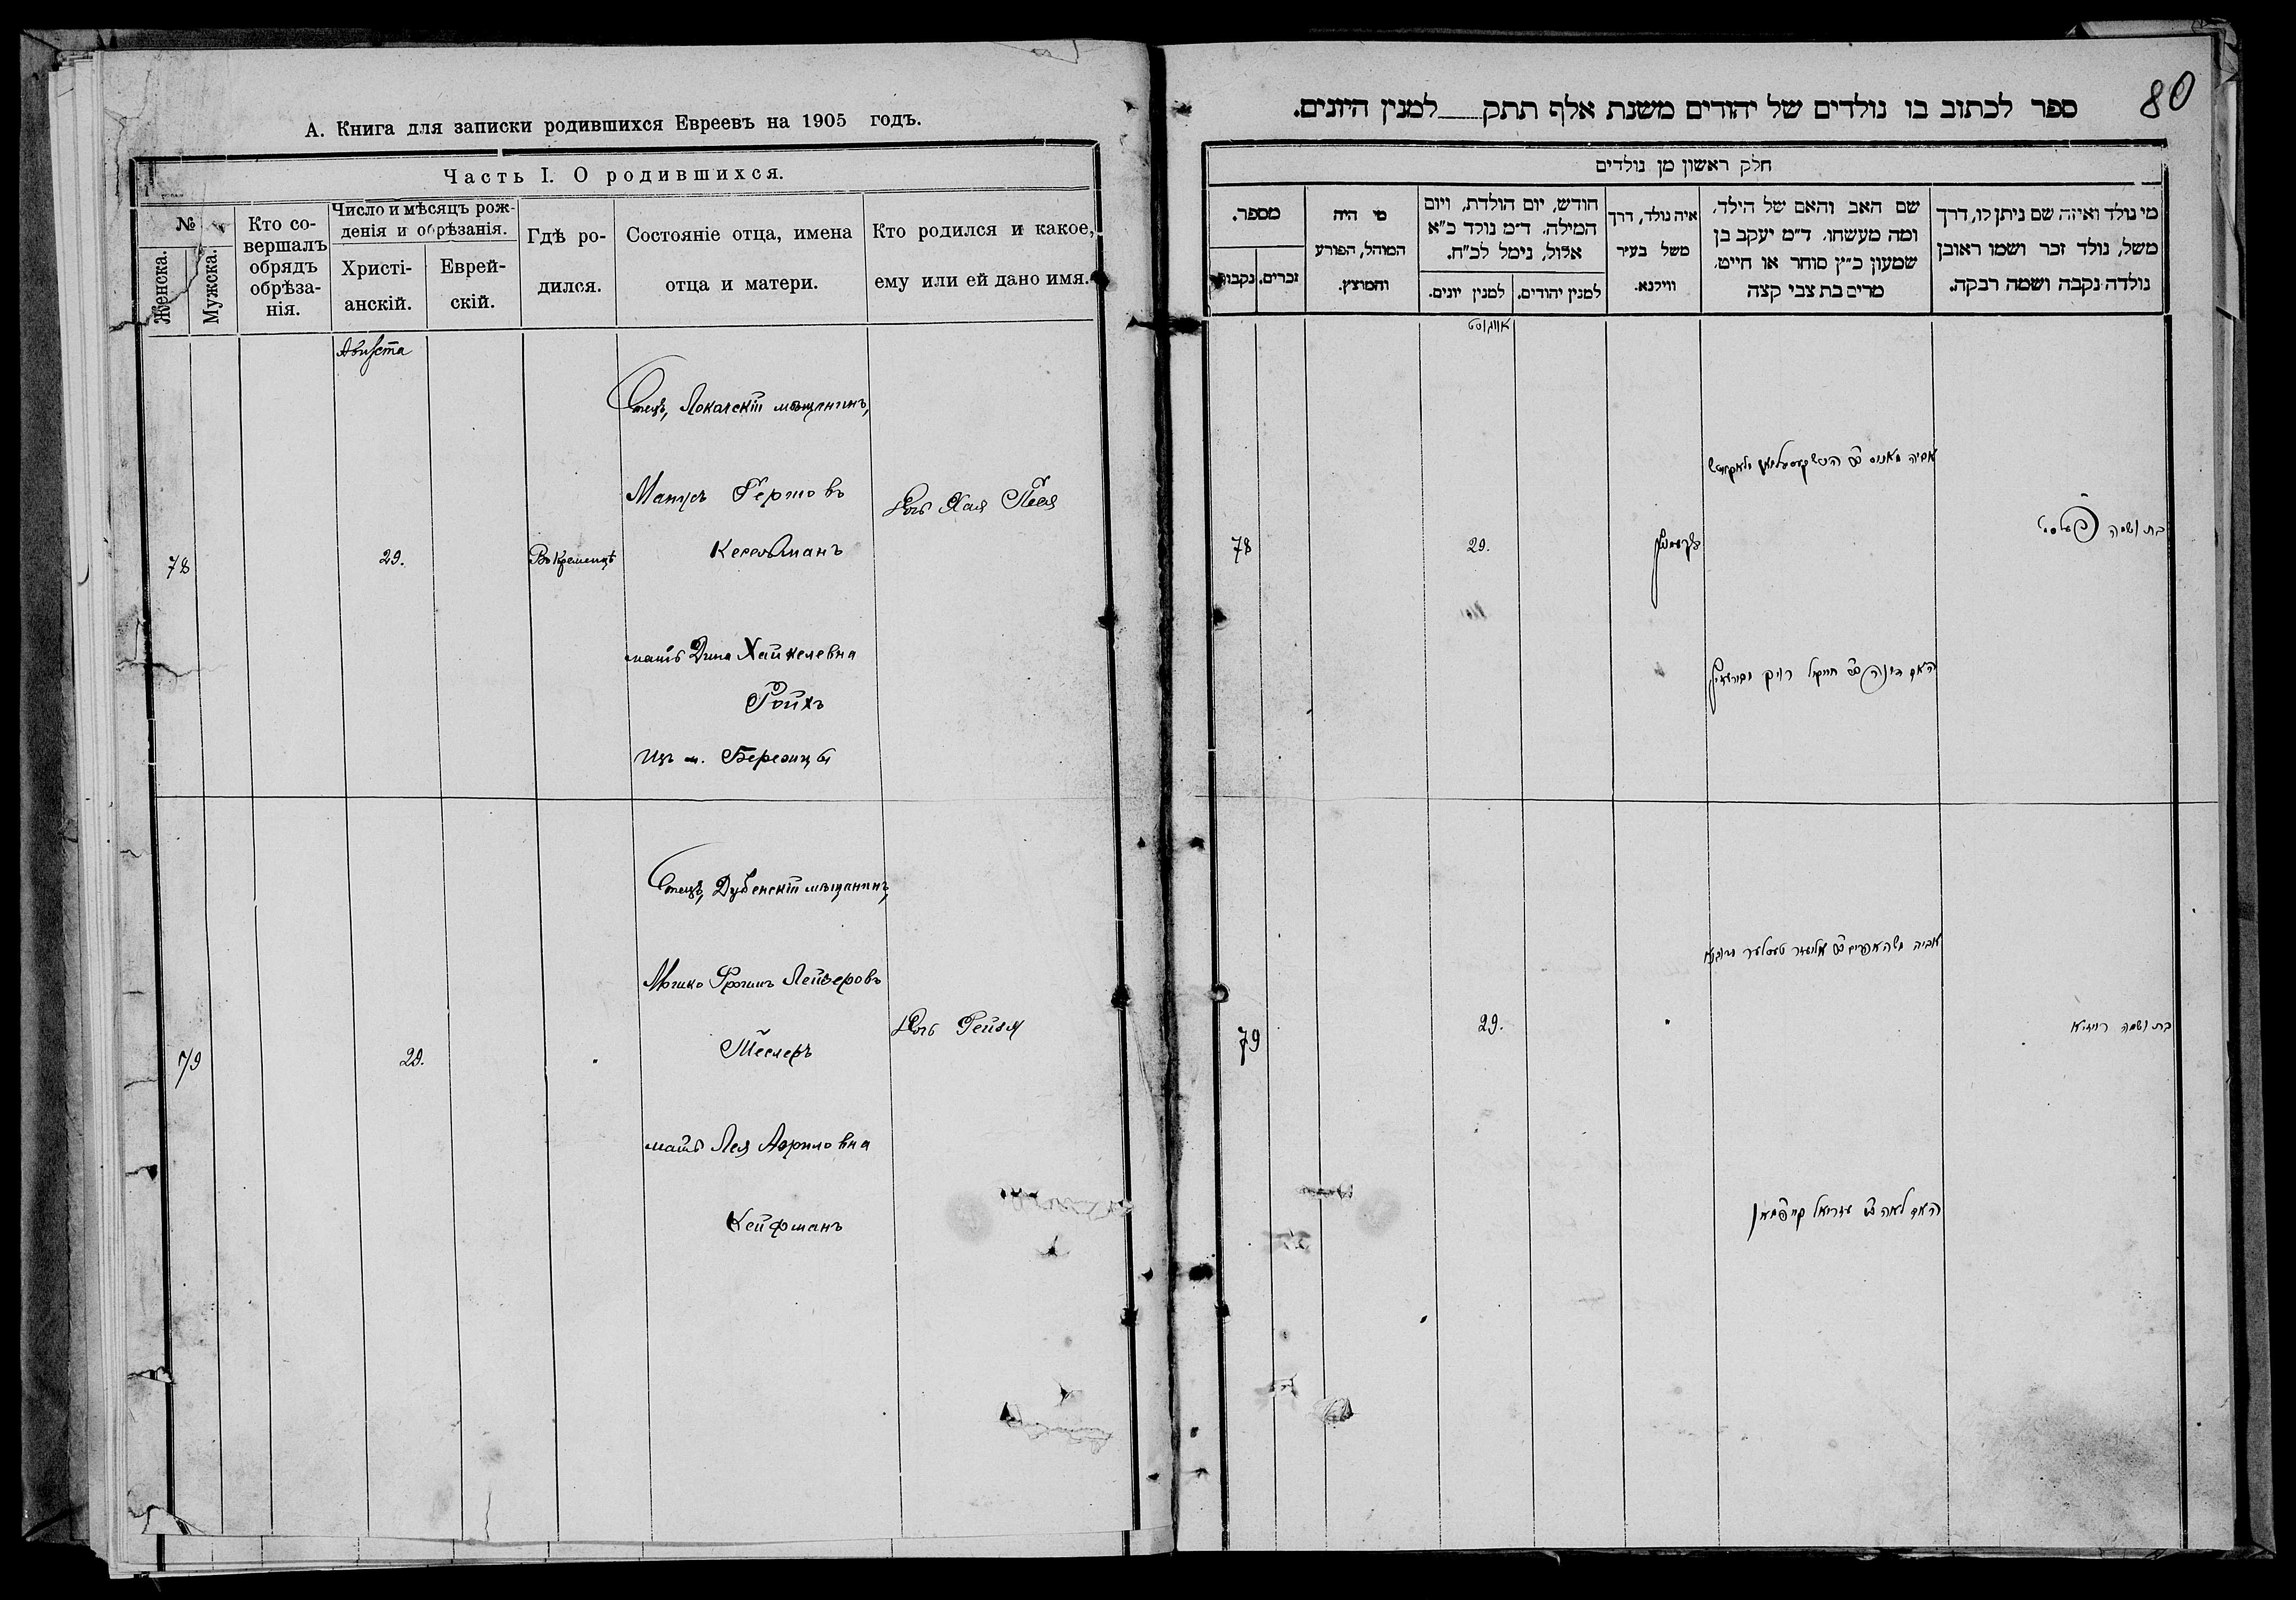 А. Книга для записки родившихся Евреевъ на 1905 годъ.
Часть I. О родившихся.
№
Женска.
Мужска.
Кто со-
вершалъ
обрядъ
обрѣза-
нія.
Число и мѣсяцъ рож-
денія и обрѣзанія.
Христі-
анскій.
Еврей-
скій.
Гдѣ ро-
дился.
Состояніе отца, имена
отца и матери.
Кто родился и какое,
ему или ей дано имя.
Августа
78
29.
Въ Кременцѣ
Отецъ, Локачскій мѣщанинъ,
Манусъ Гершовъ
Кесельманъ
мать Дина Хайкелевна
Ройхъ
изъ м. Березцы
Дочь Хая Песя
79
29.
Отецъ, Дубенскій мѣщанинъ,
Мошко Фроимъ Лейзеровъ
Теслеръ
мать Лея Азриловна
Кейфманъ
Дочь Рейзя
80
ספר לכתוב בו נולדים של יהודים משנת אלף תתק למנין היונים.
חלק ראשון מן נולדים
מספר.
זכרים.
נקבות
מי היה
המוהל, הפורע
והמוצץ.
חודש, יום הולדת, ויום
המילה. ד״מ נולד כ״א
אלול, נימל לכ״ח.
למנין יונים.
למנין יהודים.
איה נולד, דרך
משל בעיר
ווילנא.
שם האב והאם של הילד,
ומה מעשהו. ד״מ יעקב בן
שמעון כ״ץ סוחר או חייט.
מרים בת צבי קצה
מי נולד ואיזה שם ניתן לו, דרך
משל, נולד זכר ושמו ראובן
נולדה נקבה ושמה רבקה.
אווגוסט
78
29.
אביה מאנוס
האם דינה חייקל רויך
בת ושמה
79
29.
אביה משה אפרים אליעזר טעסלער
האם לאה עזריאל קייפמאן
בת ושמה רייזיא